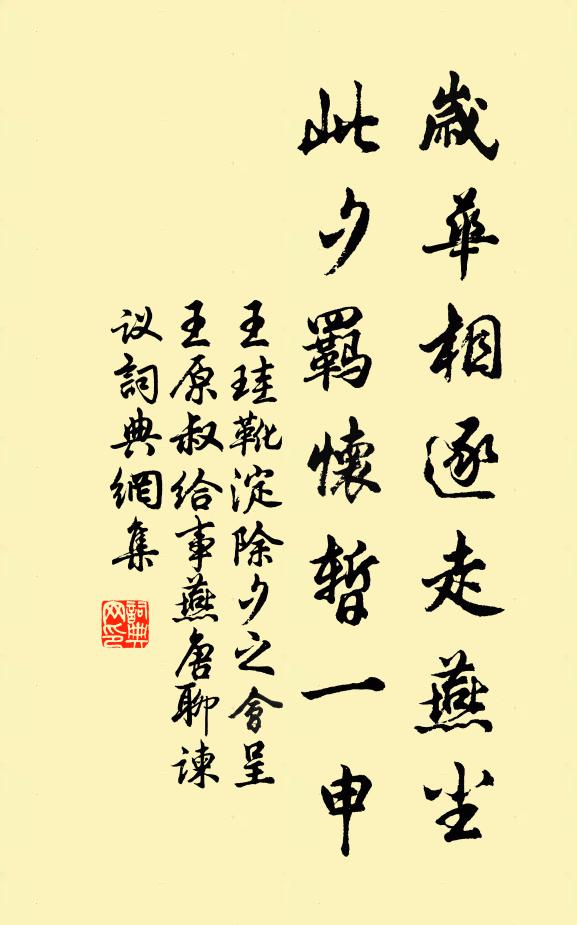 歲華相逐走燕尘
此夕羈懷暫一申
王珪靴淀除夕之會呈
王原叔給事燕唐聊諫
议詞典網集
詞典网印